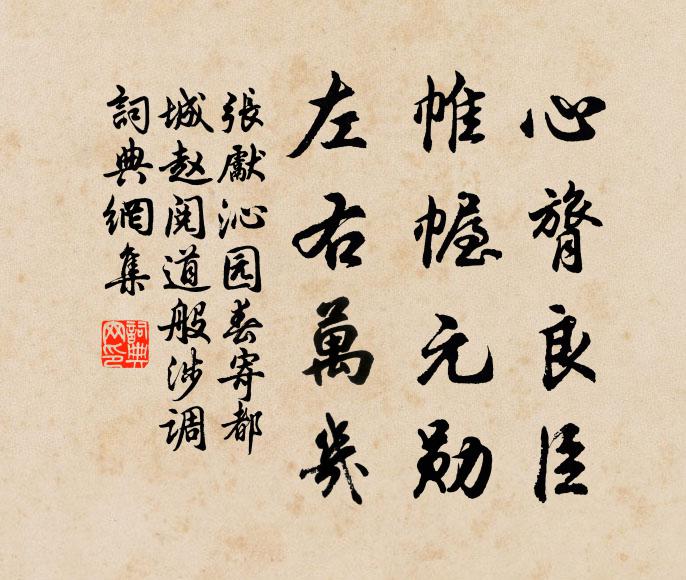 心膂良臣
帷幄元勋
左右萬幾
張獻沁园春寄都
城赵阅道般涉调
詞典網集
詞典網印